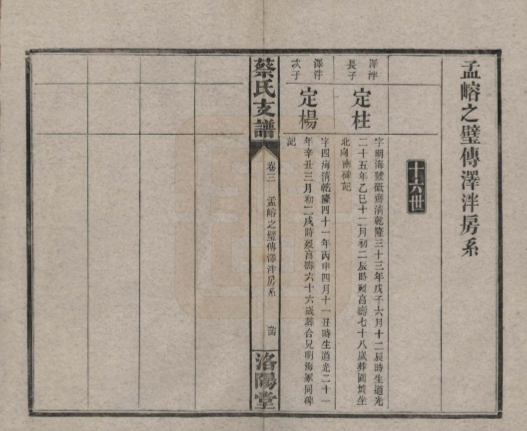 孟嵱之璧傳澤泮房系
十六世
澤泮
長子
定柱
字明海號砥齋清乾隆三十三年戊子六月十二辰時生道光
二十五年乙巳十二月初二辰時歿享壽七十八歲葬圓墳坐
北向南碑記
澤泮
次子
定楊
字四海清乾隆四十一年丙申四月十一丑時生道光二十一
年辛丑三月初二戌時歿享壽六十六歲葬合兄明海冢同碑
記
蔡氏支譜
卷三
孟嵱之璧傳澤泮房系
洛陽堂